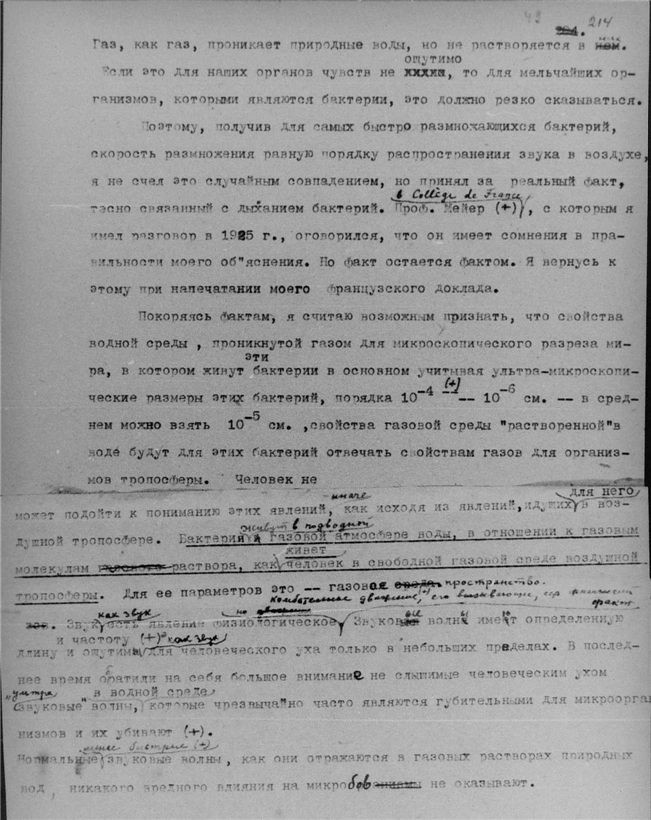 49 214
Газ, как газ, проникает природные воды, но не растворяется в
ощутимо
Если это для наших органов чувств не, то для мельчайших ор-
ганизмов, которыми являются бактерии, это должно резко сказываться.
Поэтому, получив для самых быстро размножающихся бактерий,
скорость размножения равную порядку распространения звука в воздухе,
я не счел это случайным совпадением, но принял за реальный факт,
в Collège de France
тесно связанный с дыханием бактерий. Проф. Мейер (+), с которым я
имел разговор в 1925 г., оговорился, что он имеет сомнения в пра-
вильности моего об"яснения. Но факт остается фактом. Я вернусь к
этому при напечатании моего французского доклада.
Покоряясь фактам, я считаю возможным признать, что свойства
водной среды, проникнутой газом для микроскопического разреза ми-
эти
ра, в котором живут бактерии в основном учитывая ультра-микроскопи-
(+)
ческие размеры этих бактерий, порядка 10⁻⁴ -- 10⁻⁶ см. -- в сред-
нем можно взять 10⁻⁵ см., свойства газовой среды "растворенной" в
воде будут для этих бактерий отвечать свойствам газов для организ-
мов тропосферы. Человек не
иначе для него
может подойти к пониманию этих явлений, как исходя из явлений, идущих в воз-
живут в подводной
душной тропосфере. Бактерии газовой атмосфере воды, в отношении к газовым
живет
молекулам раствора, как человек в свободной газовой среде воздушной
тропосферы. Для ее параметров это -- газовое пространство.
колебательное движение (+), его вызывающее, есть
как звук но
Звук есть явление физиологическое, Звуковые волны имеют определенную
и частоту (+) как звук
длину и ощутимы для человеческого уха только в небольших пределах. В послед-
нее время обратили на себя большое внимание не слышимые человеческим ухом
"ультра" в водной среде
звуковые волны, которые чрезвычайно часто являются губительными для микроорга
низмов и их убивают (+).
менее быстрые (+)
Нормальные звуковые волны, как они отражаются в газовых растворах природных
вод, никакого вредного влияния на микробов не оказывают.